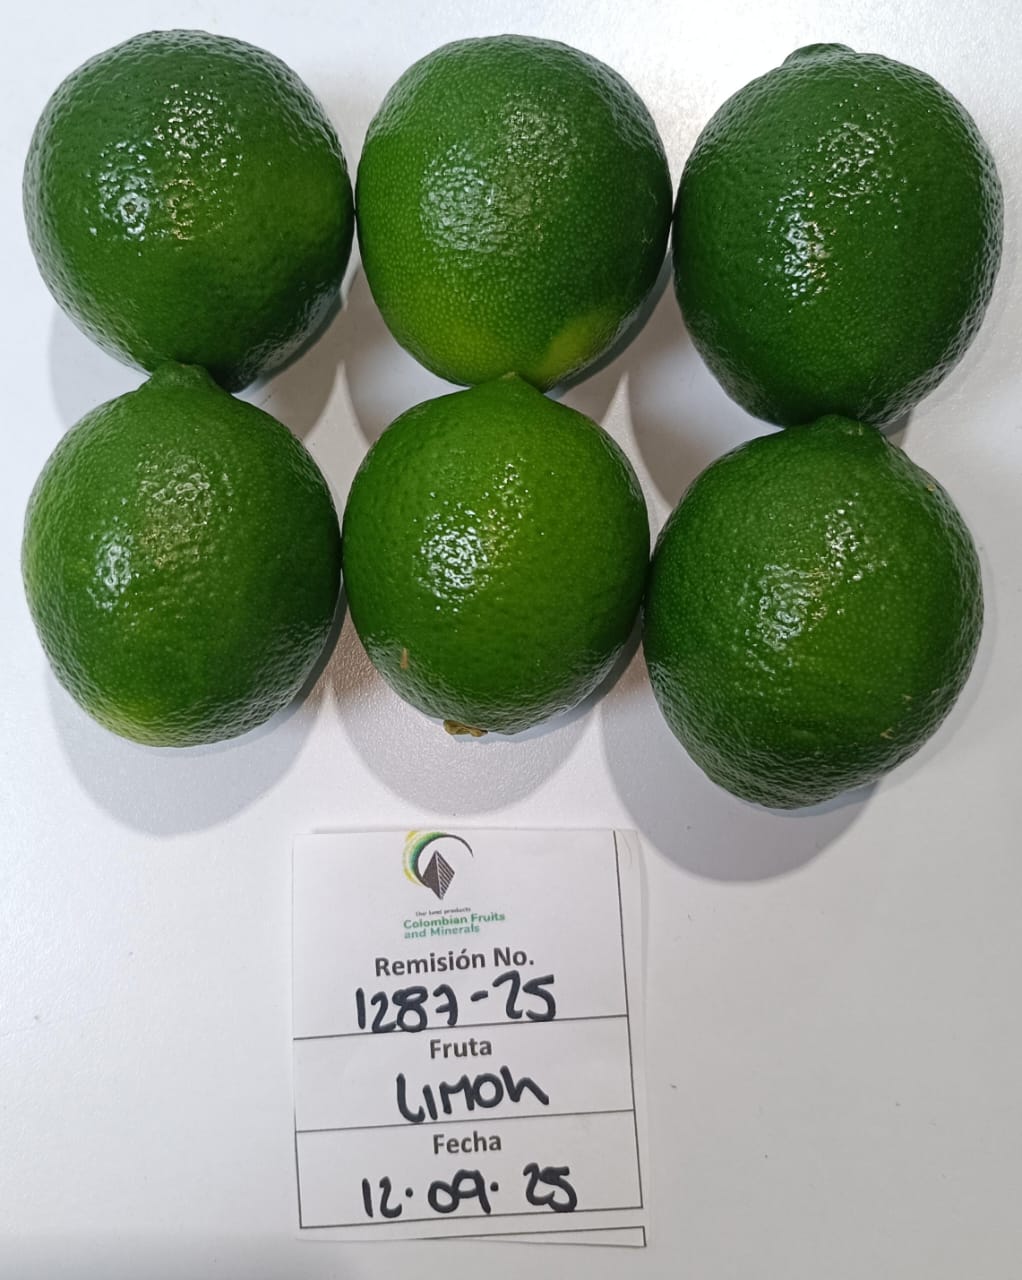 Colombian Fruits
and Minerals
Remisión No.
1287-25
Fruta
LIMON
Fecha
12.09.25